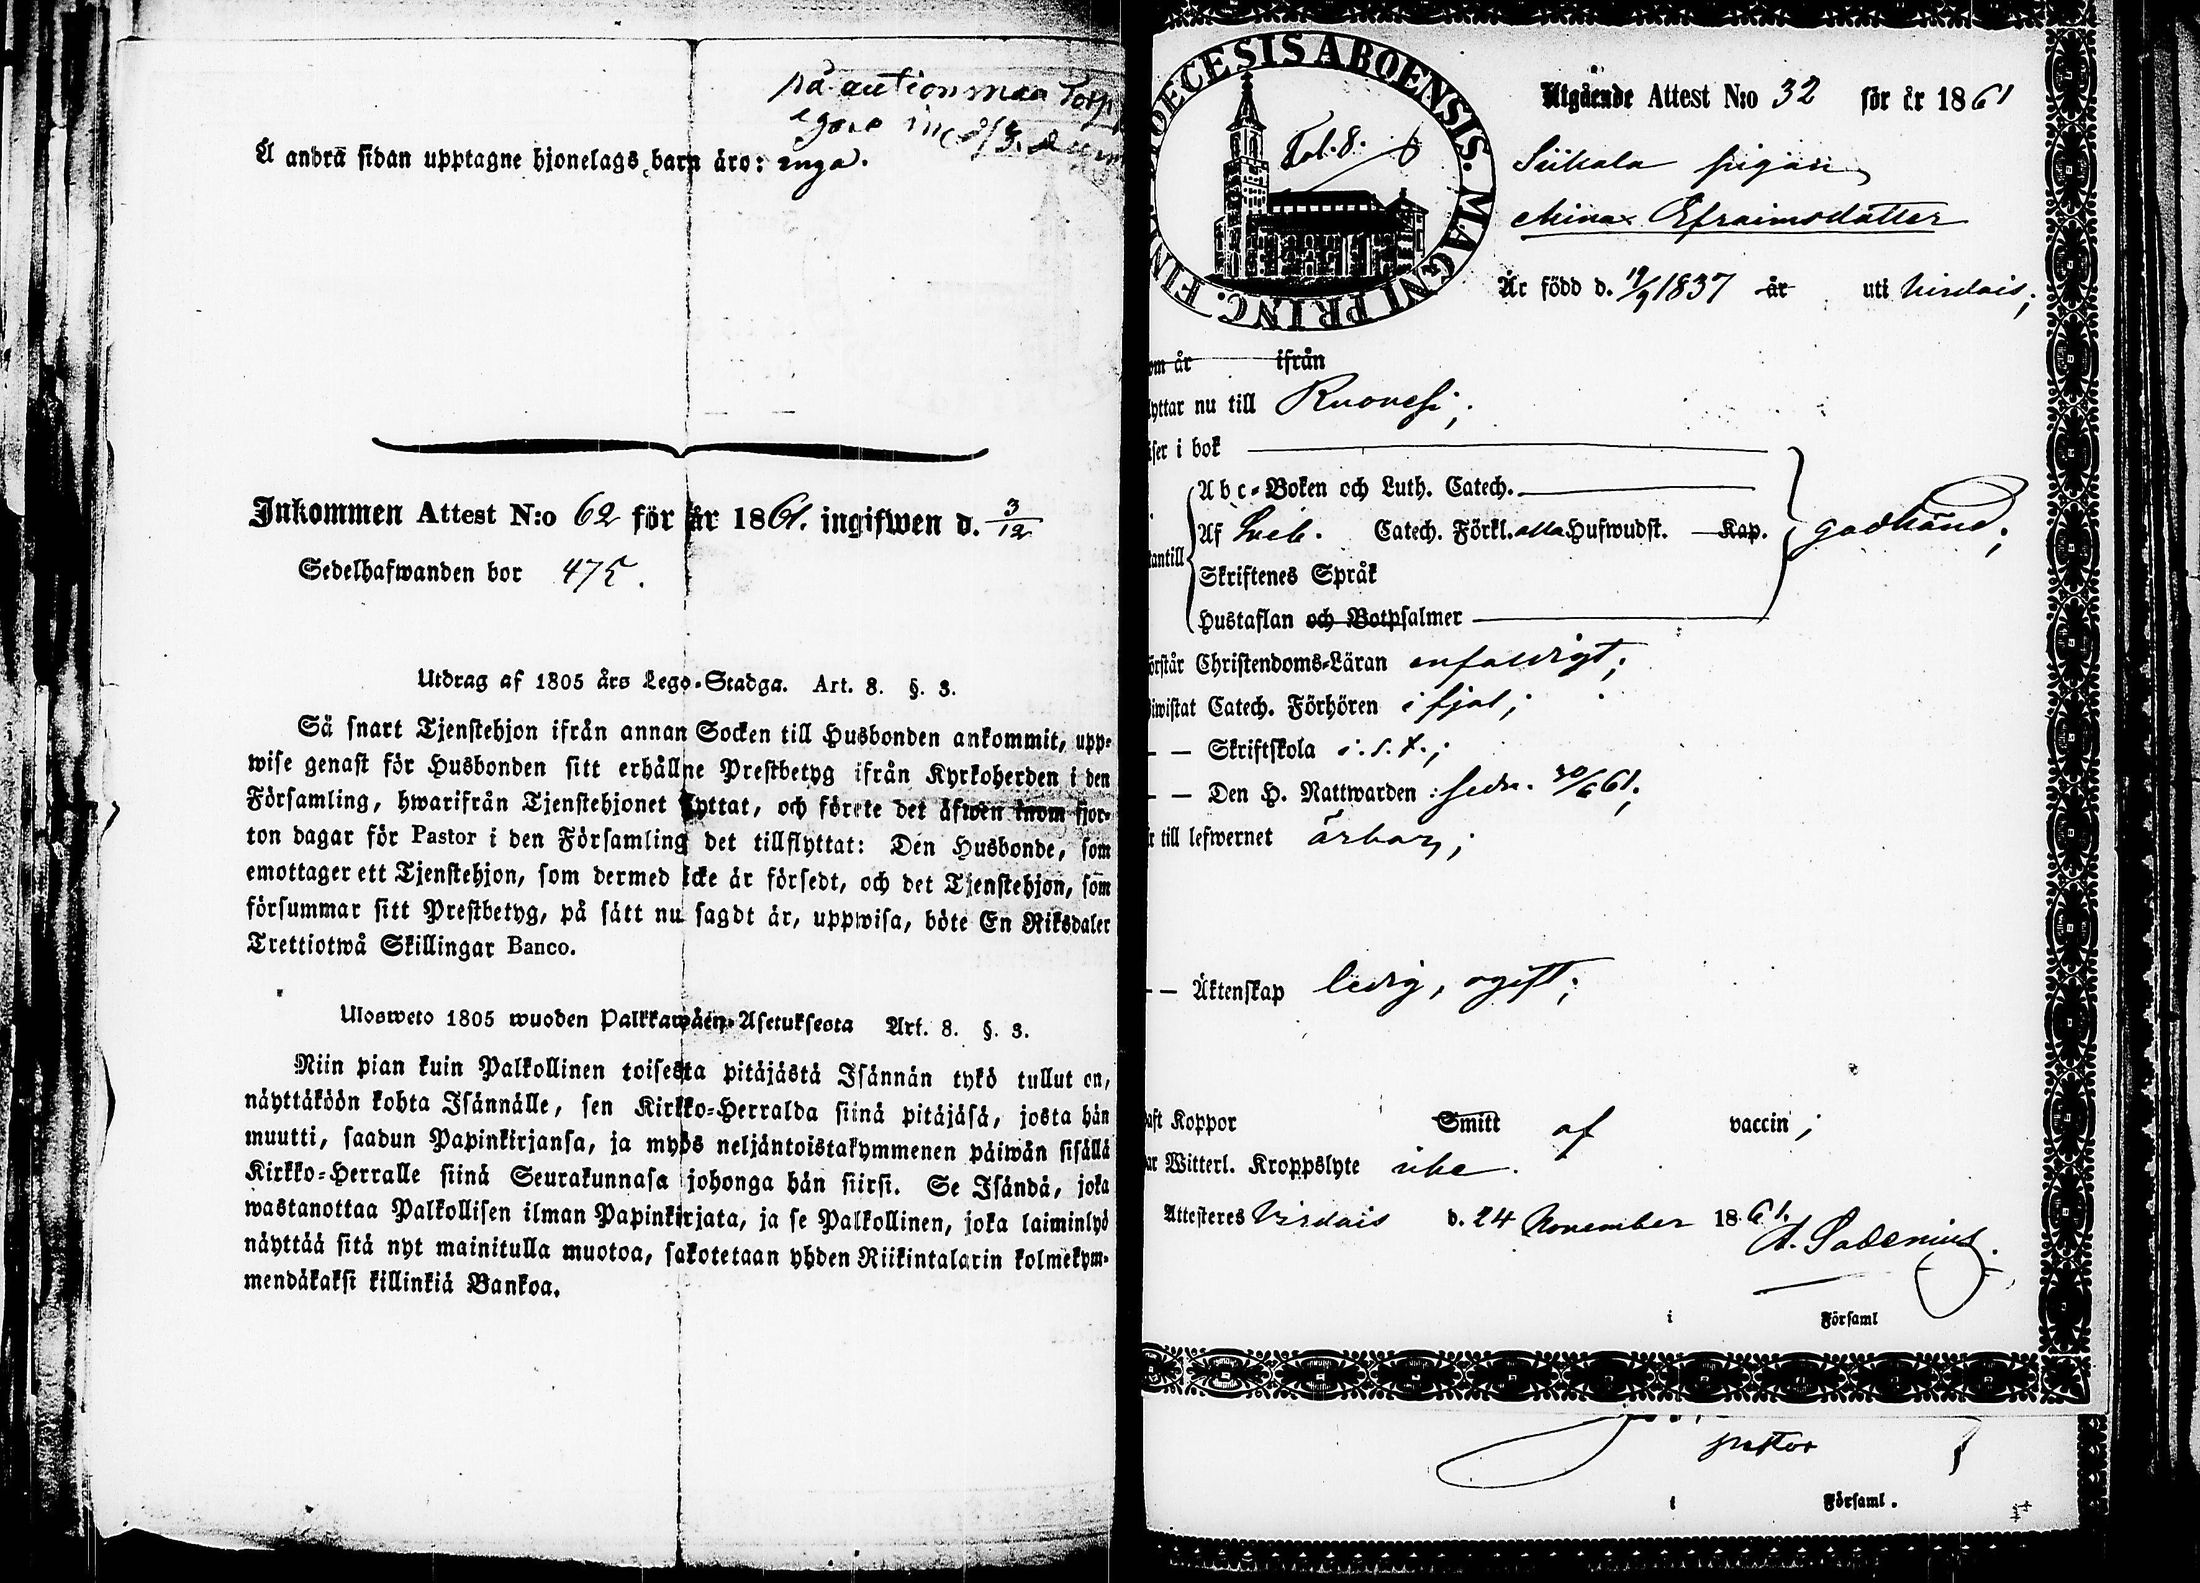 på auction
A andra sidan upptagne hjonelags barn äro: inga.
Inkommen Attest N:o 62 för år 1861. ingifwen d. 3/12
Sedelhafwanden bor 475.
Utdrag af 1805 års Lego-Stadga. Art. 8. §. 3.
Så snart Tjenstehjon ifrån annan Socken till Husbonden ankommit, upp-
wise genast för Husbonden sitt erhållne Prestbetyg ifrån Kyrkoherden i den
Församling, hwarifrån Tjenstehjonet flyttat, och förete det äfwen inom fjor-
ton dagar för Pastor i den Församling det tillflyttat: Den Husbonde, som
emottager ett Tjenstehjon, som dermed icke är försedt, och det Tjenstehjon, som
försummar sitt Prestbetyg, på sätt nu sagdt är, uppwisa, böte En Riksdaler
Trettiotwå Skillingar Banco.
Ulosweto 1805 wuoden Palkkawäen-Asetuksesta Art. 8. §. 3.
Niin pian kuin Palkollinen toisesta pitäjästä Isännän tykö tullut on,
näyttäköön kohta Isännälle, sen Kirkko-Herralda siinä pitäjäsä, josta hän
muutti, saadun Papinkirjansa, ja myös neljäntoistakymmenen päiwän sisällä
Kirkko-Herralle siinä Seurakunnasa johonga hän siirsi. Se Isändä, joka
wastanottaa Palkollisen ilman Papinkirjata, ja se Palkollinen, joka laiminlyö
näyttää sitä nyt mainitulla muotoa, sakotetaan yhden Riikintalarin kolmekym-
mendäkaksi killinkiä Bankoa.
DIOECESIS ABOENSIS. MAGNI PRINC. FIN
Fol. 8.
Utgående Attest N:o 32 för år 1861
Siikala pigan
Mina Efraimsdotter
Är född d. 19/9 1837 år uti Virdois;
om år ifrån
lyttar nu till Ruovesi;
äser i bok
Abc-Boken och Luth. Catech.
Af Sveb. Catech. Förkl. alla Hufwudst. Kap. godkänd;
antill
Skriftenes Språk
Hustaflan och Botpsalmer
örstår Christendoms-Läran enfaldigt;
iwistat Catech. Förhören i fjol;
— — Skriftskola i. s. t.;
— — Den H. Nattwarden sedn. 30/6 61;
r till lefwernet ärbar;
— — Äktenskap ledig, ogift;
aft Koppor Smitt af vaccin;
ar Witterl. Kroppslyte icke.
Attesteres Virdois d. 24 November 1861.
A. Sadenius.
i Församl
pastor
i Församl.